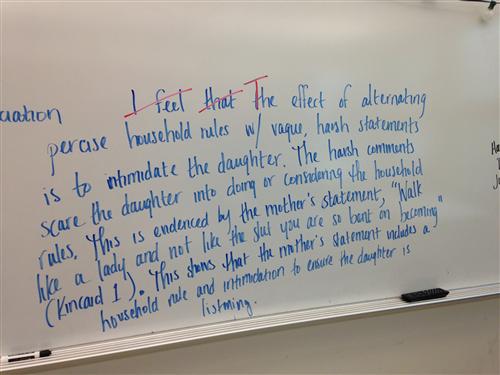 uation
I feel that The effect of alternating
percise household rules w/ vague, harsh statements
is to intimidate the daughter. The harsh comments
scare the daughter into doing or considering the household
rules. This is endenced by the mother's statement, "Walk
like a lady and not like the slut you are so bent on becoming"
(Kincaid 1). This shows that the mother's statement includes a
household rule and intimidation to ensure the daughter is
listming.